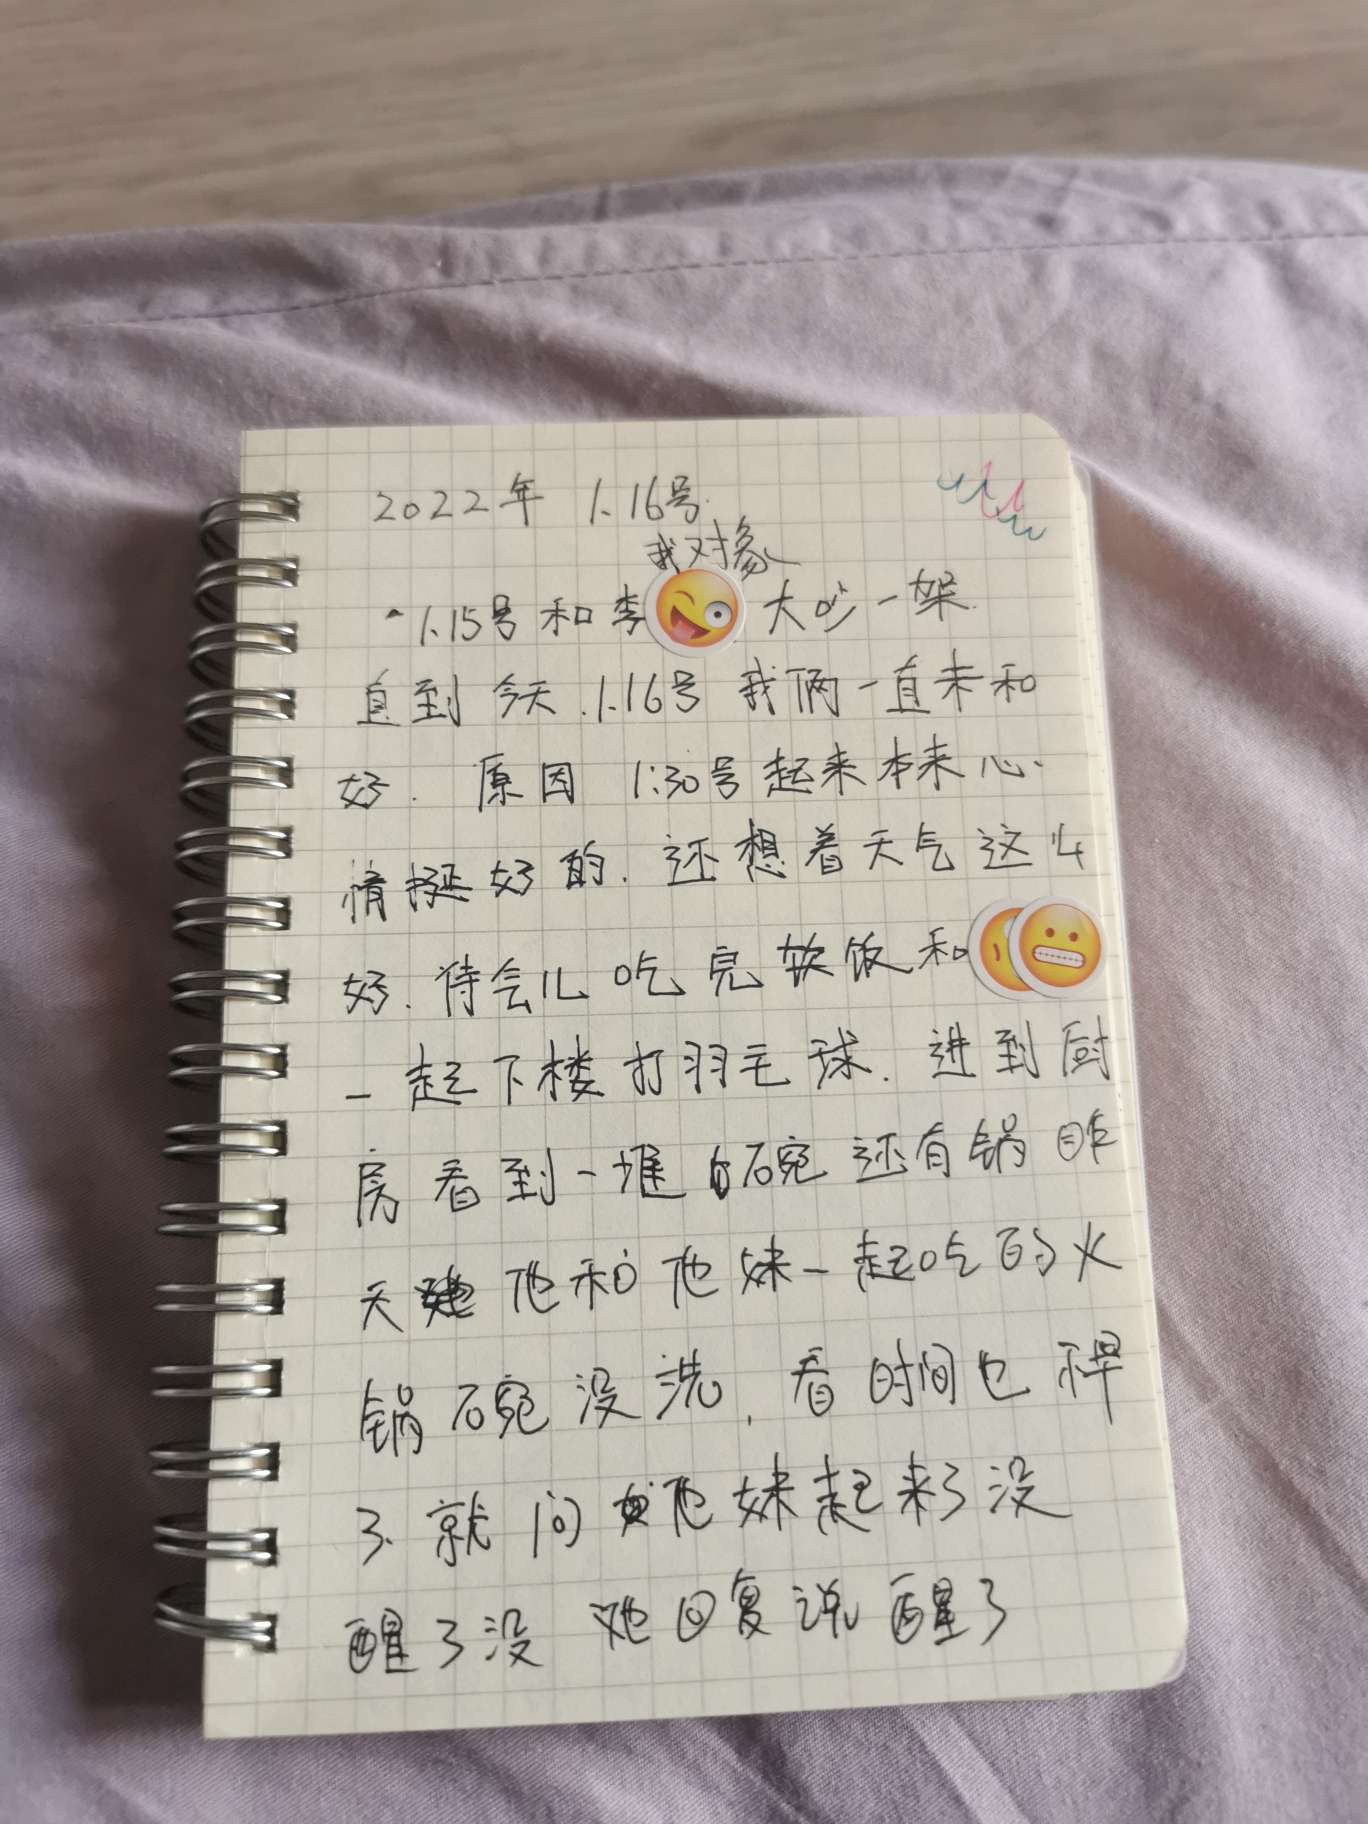 2022年 1.16号.
我对象
1.15号和李 大吵一架.
直到今天.1.16号 我俩一直未和
好. 原因 1:30号起来本来心.
情挺好的.还想着天气这么
好.待会儿吃完软饭和
一起下楼打羽毛球.进到厨
房看到一堆碗还有锅昨
天他和他妹一起吃的火
锅碗没洗,看时间也不早
了.就问他妹起来了没
醒了没 她回复说醒了